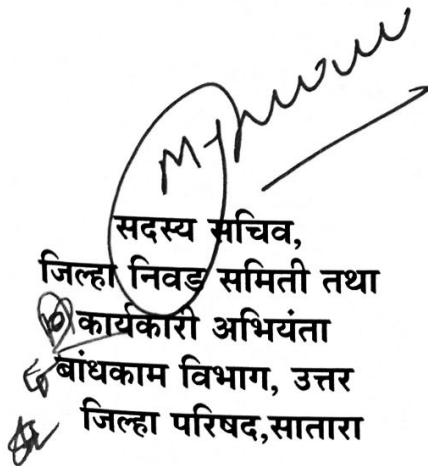 सदस्य सचिव,
जिल्हा निवड समिती तथा
कार्यकारी अभियंता
बांधकाम विभाग, उत्तर
जिल्हा परिषद,सातारा